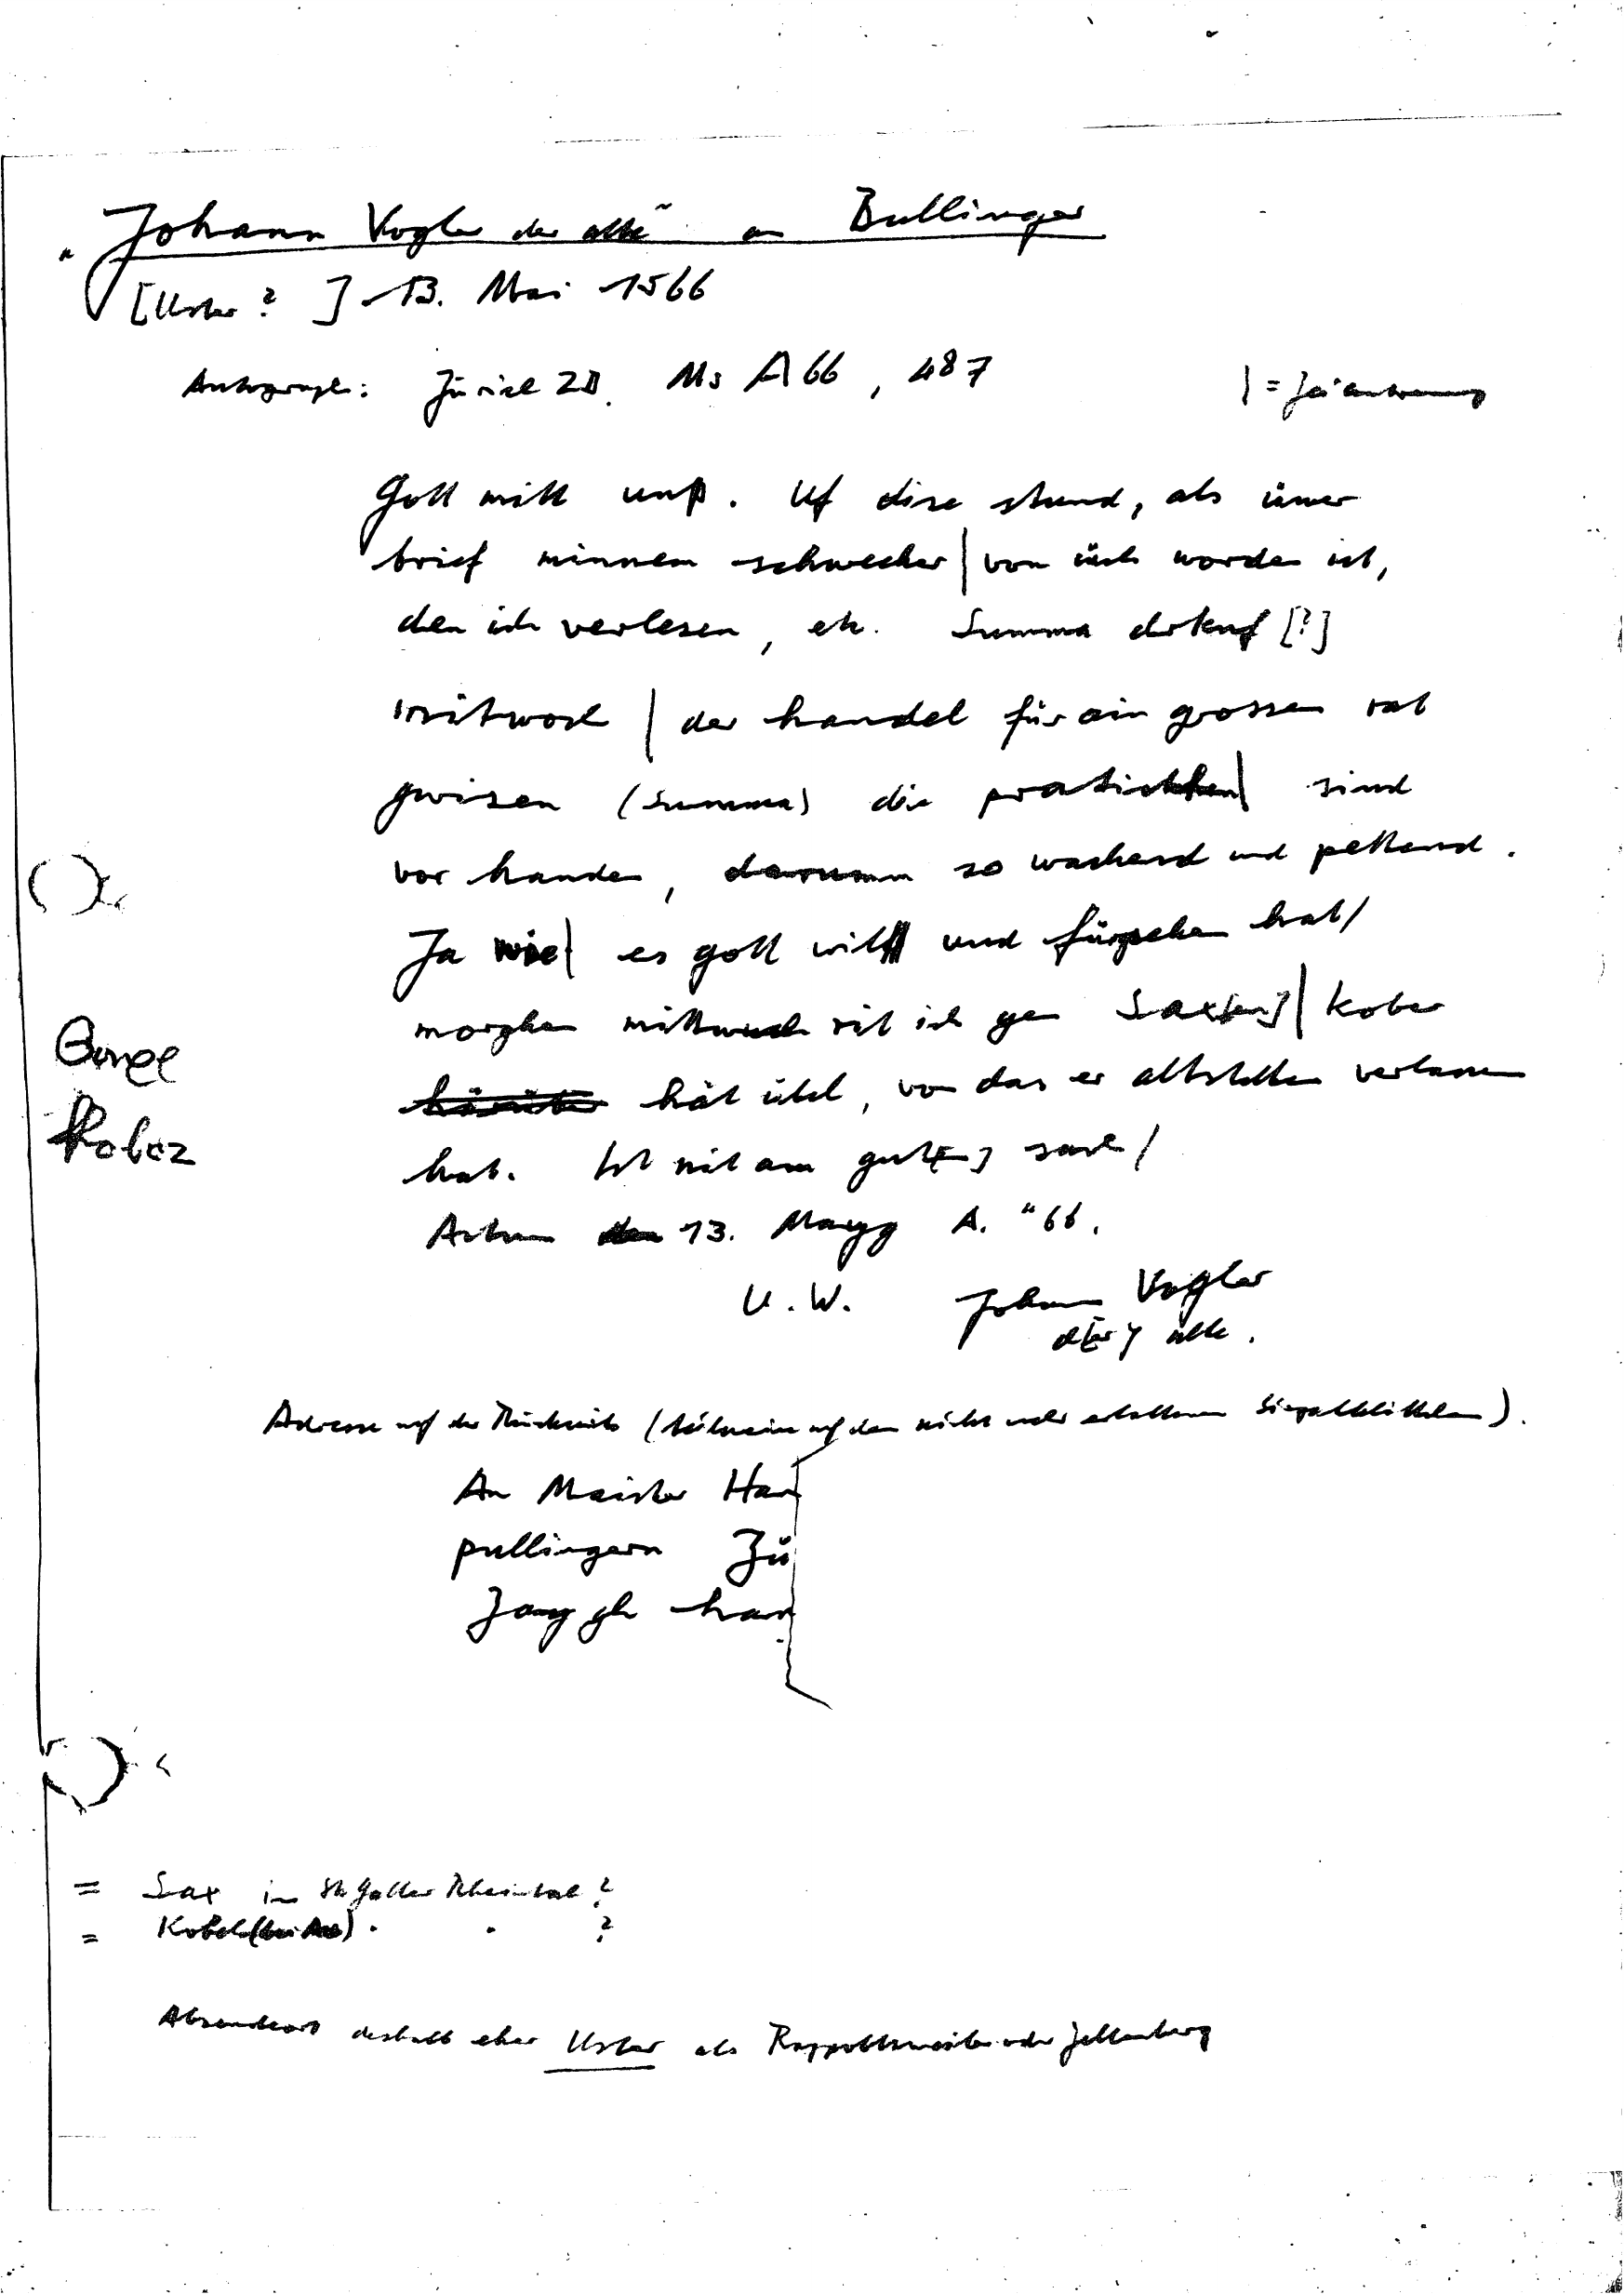 "Johann Vogler der alte" an Bullinger
[Uster ? ] 13. Mai 1566
Autograph: Zürich ZB, Ms A 66, 487
| = Zeilentrennung
Gott mitt unß. Uf dise stund, als üwer
brief minnem schwecher | von üch worden ist,
den ich verlesen, etc. Summa [?]
mitwoch | der handel für ain grossen rat
gwisen (summa) die praticken | sind
vor handen, darumm so wachend und pettend.
Ja wie | es gott will und fürgsehen hat /
morghen mittwuch rit ich gen Sax[en] | Kober
hat übel, von das er altstetten verlassen
hat. Ist nit am gut[en] sach /
Actum den 13. Mayg A. "66.
U. W. Johann Vogler
d[er] alte.
Georg
Kober
Adresse auf der Rückseite (teilweise auf dem nicht mehr erhaltenen Siegelblättchen).
An Maister Han
pullingern Zü
Zoug gh han
= Sax im St. Galler Rheintal ?
= Kobel (bei Au) " " ?
Absendeort deshalb eher Uster als Rappoltsweiler oder Zellenberg